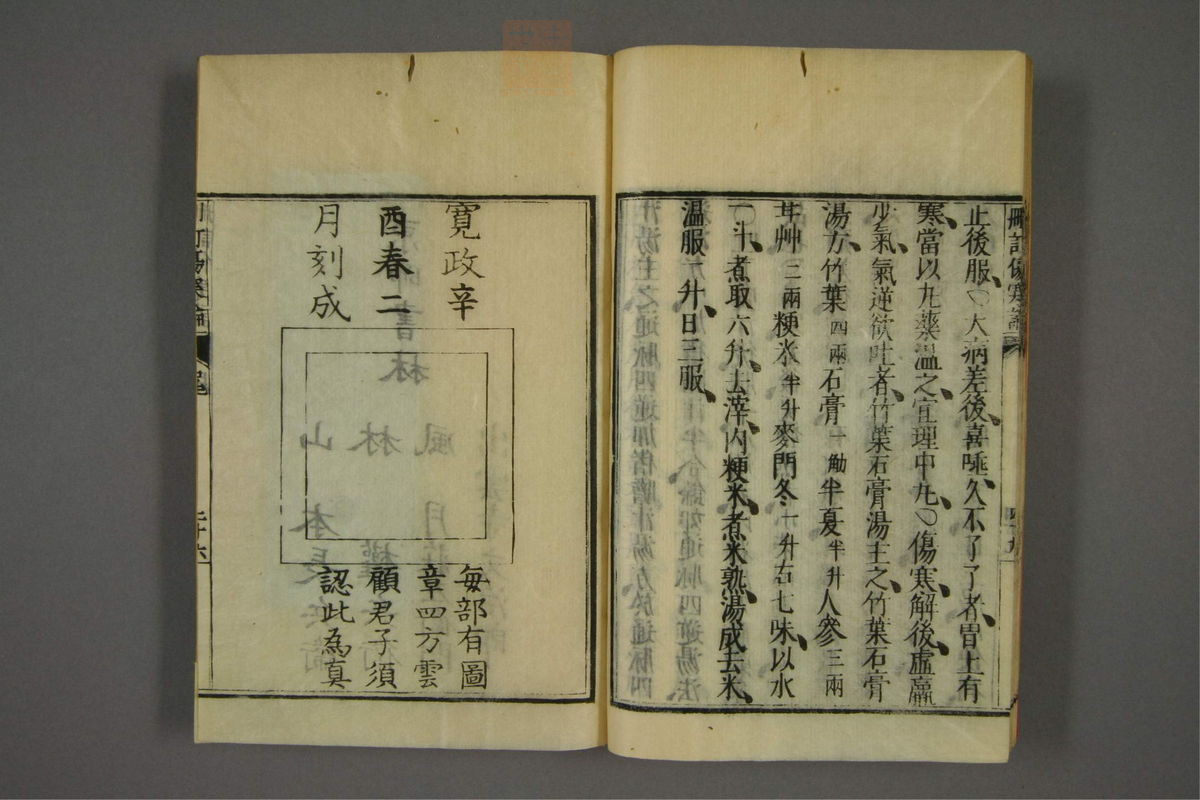 止後服○大病差後喜唾久不了了者胃上有
寒當以丸藥溫之宜理中丸○傷寒解後虛羸
少氣氣逆欲吐者竹葉石膏湯主之竹葉石膏
湯方竹葉四兩石膏一觔半夏半升人參三兩
甘艸三兩粳米半升麥門冬一升右七味以水
一斗煮取六升去滓內粳米煮米熟湯成去米
溫服一升日三服
寛政辛
酉春二
月刻成
每部有圖
章四方雲
顧君子須
認此為真